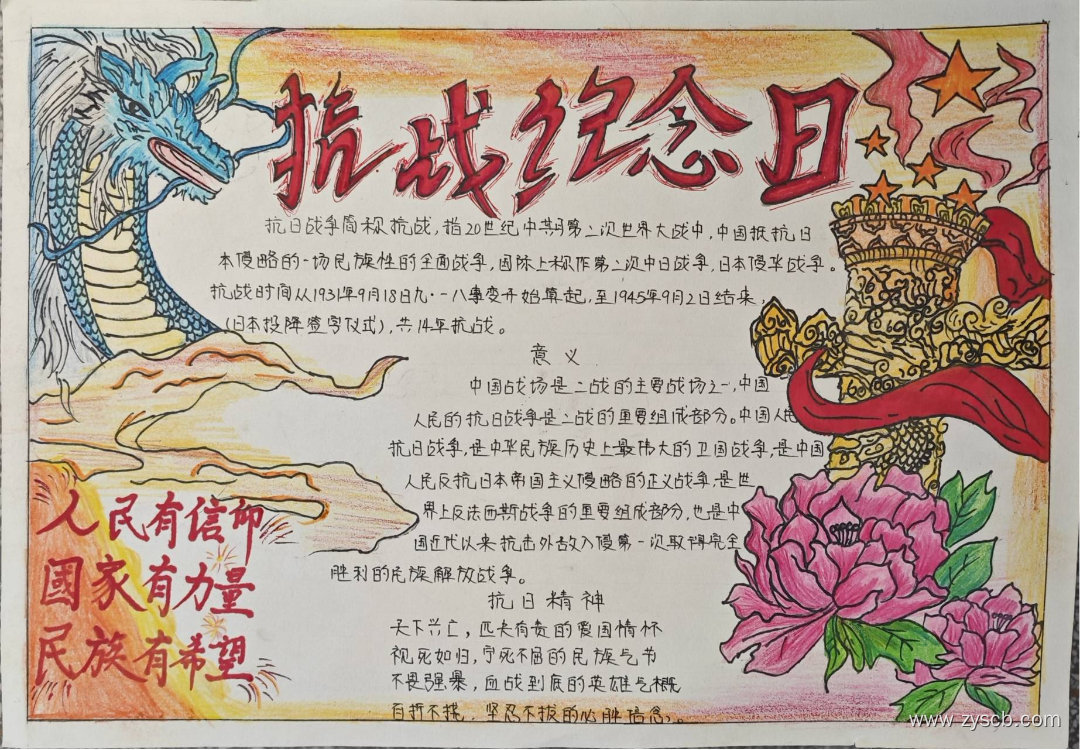 抗战纪念日
抗日战争简称抗战，指20世纪中期第二次世界大战中，中国抵抗日
本侵略的一场民族性的全面战争，国际上称作第二次中日战争，日本侵华战争。
抗战时间从1931年9月18日九·一八事变开始算起，至1945年9月2日结束，
（日本投降签字仪式），共14年抗战。
意义
中国战场是二战的主要战场之一，中国
人民的抗日战争是二战的重要组成部分。中国人民
抗日战争，是中华民族历史上最伟大的卫国战争，是中国
人民反抗日本帝国主义侵略的正义战争，是世
界上反法西斯战争的重要组成部分，也是中
国近代以来抗击外敌入侵第一次取得完全
胜利的民族解放战争。
抗日精神
天下兴亡，匹夫有责的爱国情怀
视死如归，宁死不屈的民族气节
不畏强暴，血战到底的英雄气概
百折不挠，坚忍不拔的必胜信念。
人民有信仰
國家有力量
民族有希望
www.zyscb.com